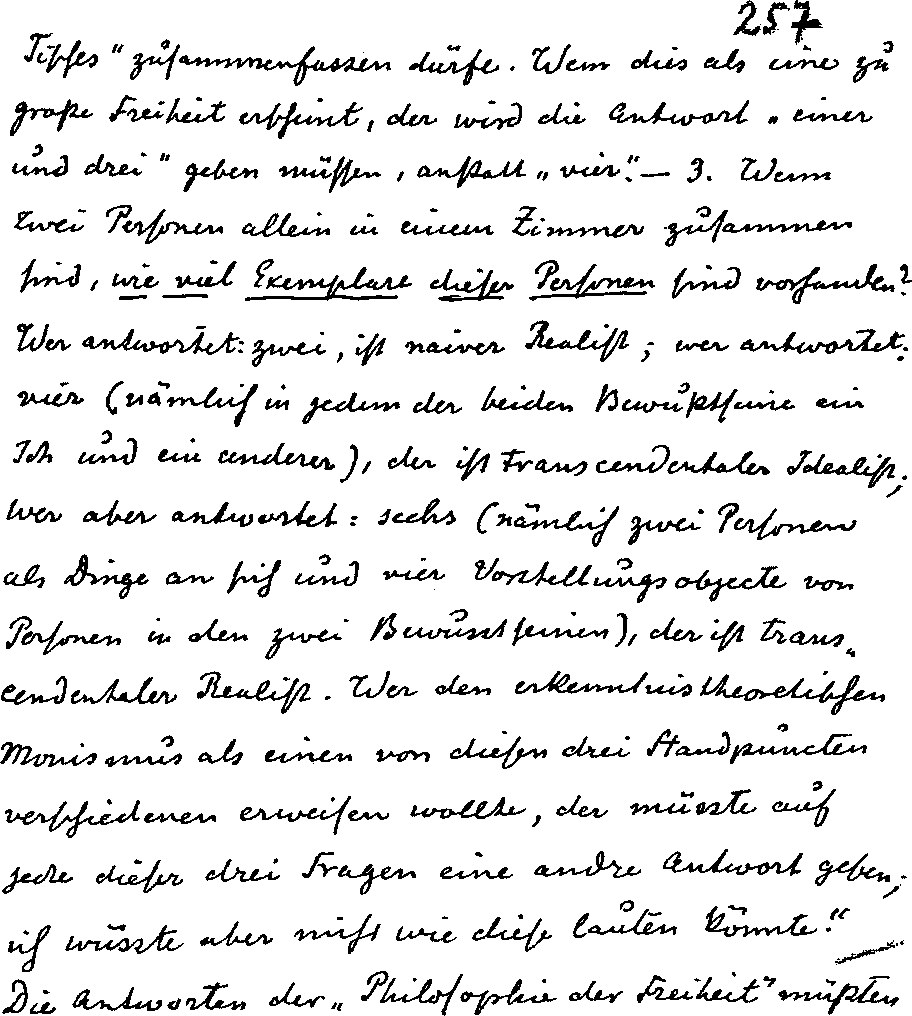 257
Tisches“ zusammenfassen dürfe. Wem dies als eine zu
große Freiheit erscheint, der wird die Antwort „einer
und drei“ geben müssen, anstatt „vier“. — 3. Wenn
zwei Personen allein in einem Zimmer zusammen
sind, wie viel Exemplare dieser Personen sind vorhanden?
Wer antwortet: zwei, ist naiver Realist; wer antwortet:
vier (nämlich in jedem der beiden Bewußtseine ein
Ich und ein anderer), der ist transcendentaler Idealist;
wer aber antwortet: sechs (nämlich zwei Personen
als Dinge an sich und vier Vorstellungsobjecte von
Personen in den zwei Bewusstseinen), der ist trans„
cendentaler Realist. Wer den erkenntnistheoretischen
Monismus als einen von diesen drei Standpuncten
verschiedenen erweisen wollte, der müsste auf
jede dieser drei Fragen eine andre Antwort geben;
ich wüsste aber nicht wie diese lauten könnte.“
Die Antworten der „Philosophie der Freiheit“ müßten